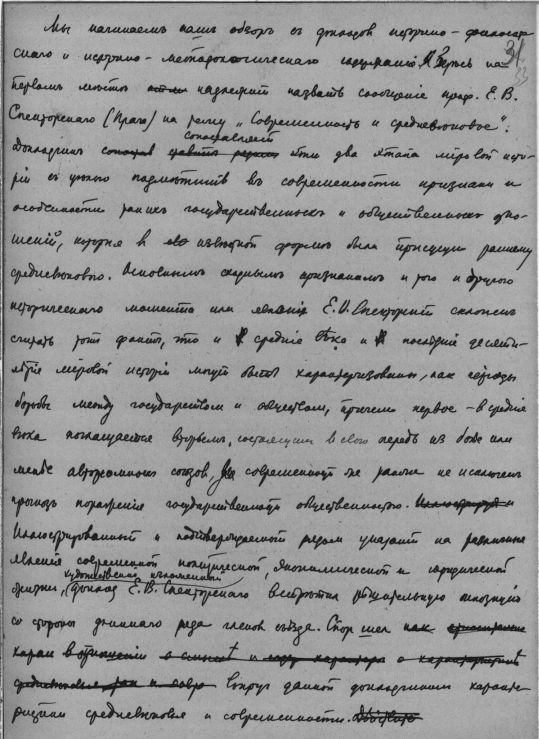 Мы начинаемъ нашъ обзоръ съ докладовъ историко-философ-
скаго и историко-методологическаго содержанія. Здесь на
первомъ мѣстѣ надлежитъ назвать сообщеніе проф. Е. В.
Спекторскаго (Прага) на тему „Современность и средневѣковье".
сопоставляетъ
Докладчикъ эти два этапа міровой исто-
ріи съ цѣлью подмѣтить въ современности признаки и
особенности раннихъ государственныхъ и общественныхъ отно-
шеній, которые в извѣстной формѣ были присущи раннему
средневѣковью. Основнымъ сходнымъ признакомъ и того и другого
историческаго момента или явленія Е. В. Спекторскій склоненъ
считать тотъ фактъ, что и средніе вѣка и послѣдніе десяти-
лѣтія міровой исторіи могутъ быть характеризованы, какъ періоды
борьбы между государствомъ и обществомъ, причемъ первое - въ средніе
вѣка поглощается вторымъ, состоящимъ в свою очередь из более или
менѣе автономныхъ союзовъ, современности же не исключенъ
прогнозъ пораженія государственности общественностью. и
Иллюстрированный и подтверждаемый рядомъ указаній на различныя
явленія современной политической, экономической и юридической
художественно изложенный
жизни, докладъ Е. В. Спекторскаго встрѣтилъ рѣшительную оппозицію
со стороны длиннаго ряда членовъ съѣзда. Споръ шелъ
вокругъ данной докладчикомъ характе-
ристики средневѣковья и современности.